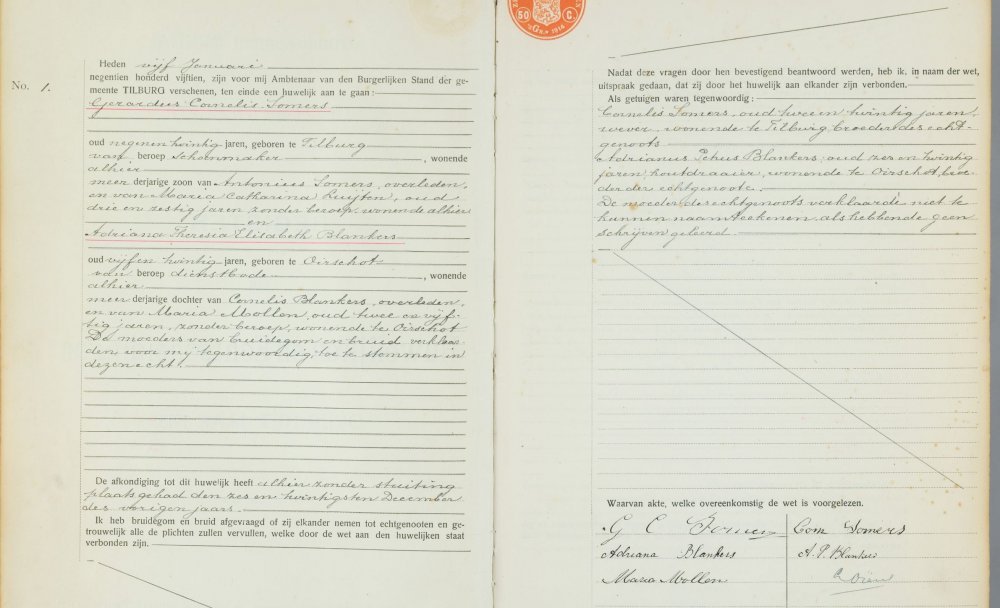 50 C.
1914
No. 1.
Heden vijf Januari
negentien honderd vijftien, zijn voor mij Ambtenaar van den Burgerlijken Stand der ge-
meente TILBURG verschenen, ten einde een huwelijk aan te gaan:
Gerardus Cornelis Somers
oud negenen twintig jaren, geboren te Tilburg
van beroep schoenmaker, wonende
alhier
meer derjarige zoon van Antonius Somers, overleden,
en van Maria Catharina Luijten, oud
drie en zestig jaren zonder beroep, wonende alhier
en
Adriana Theresia Elisabeth Blankers
oud vijfen twintig jaren, geboren te Oirschot
van beroep dienstbode, wonende
alhier
meer derjarige dochter van Cornelis Blankers, overleden,
en van Maria Mollen, oud twee en vijf-
tig jaren, zonder beroep, wonende te Oirschot
De moeders van bruidegom en bruid verklaar-
den, voor mij tegenwoordig, toe te stemmen in
dezen echt.
De afkondiging tot dit huwelijk heeft alhier zonder stuiting
plaats gehad den zes en twintigsten December
des vorigen jaars.
Ik heb bruidegom en bruid afgevraagd of zij elkander nemen tot echtgenooten en ge-
trouwelijk alle de plichten zullen vervullen, welke door de wet aan den huwelijken staat
verbonden zijn.
Nadat deze vragen door hen bevestigend beantwoord werden, heb ik, in naam der wet,
uitspraak gedaan, dat zij door het huwelijk aan elkander zijn verbonden.
Als getuigen waren tegenwoordig:
Cornelis Somers, oud twee en twintig jaren,
wever, wonende te Tilburg, broeder des echt-
genoots
Adrianus Petrus Blankers, oud zes en twintig
jaren, houtdraaier, wonende te Oirschot, broe-
der der echtgenoote.
De moeder des echtgenoots verklaarde niet te
kunnen naamteekenen als hebbende geen
schrijven geleerd.
Waarvan akte, welke overeenkomstig de wet is voorgelezen.
G C Somers
Corn Somers
Adriana Blankers
A. P. Blankers
Maria Mollen